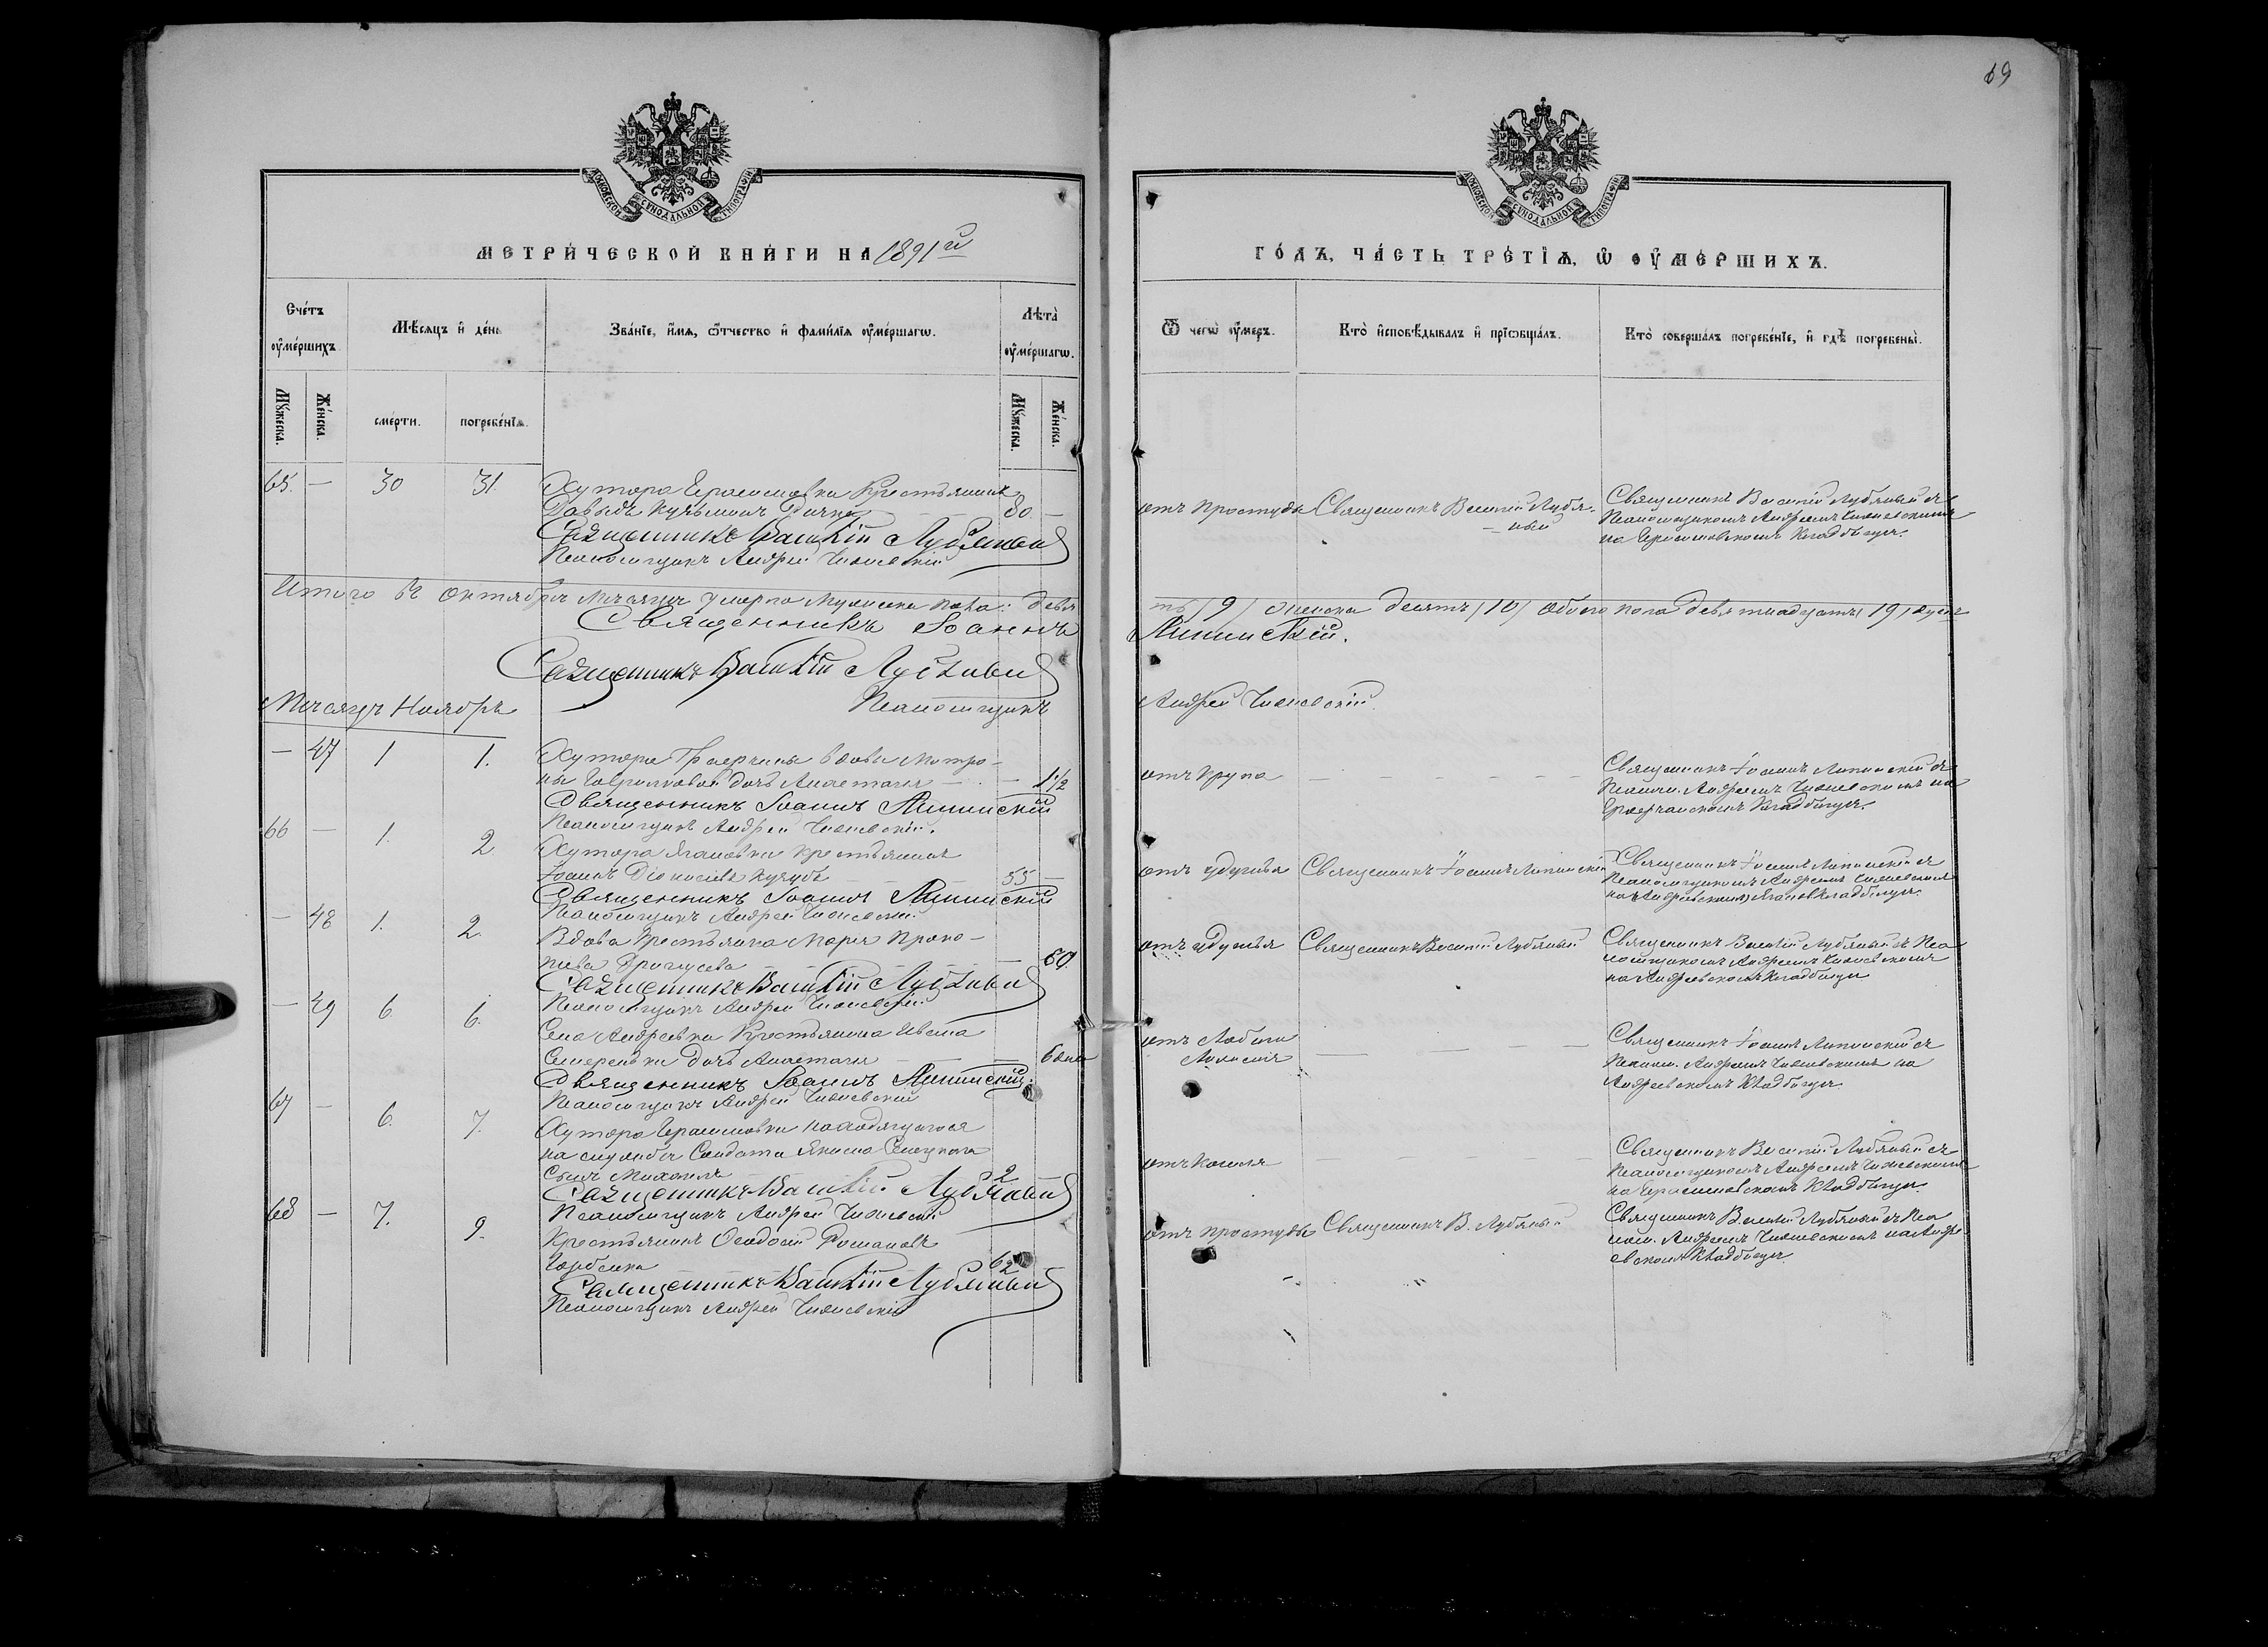 69
МОСКОВСКОЙ СѴНОДАЛЬНОЙ ТИПОГРАФІИ
МОСКОВСКОЙ СѴНОДАЛЬНОЙ ТИПОГРАФІИ
МЕТРИЧЕСКОЙ КНИГИ НА 1891й
ГОДЪ, ЧАСТЬ ТРЕТІЯ, Ѡ ОУМЕРШИХЪ.
Счетъ оумершихъ.
Мѣсяцъ и день
Званіе, имя, отчество и фамилія оумершагѡ.
Лѣта оумершагѡ.
Ѿ чегѡ оумеръ.
Кто исповѣдывалъ и пріобщалъ.
Кто совершалъ погребеніе, и гдѣ погребены.
Мужеска.
Женска.
смерти.
погребенія.
Мужеска.
Женска.
65. — 30 31. Хутора Герасимовки Крестьянинъ
Давыдъ Кузьминъ 80 —
Священникъ Василій Лубяный
Псаломщикъ Андрей
отъ простуды Священникъ Василій Лубя-
ный
Священникъ Василій Лубяный съ
Псаломщикомъ Андреемъ
на Герасимовскомъ Кладбищѣ.
Итого въ Октябрѣ мѣсяцѣ умерло мужска пола: девя
ть /9/ женска десять /10/ обоего пола девятнадцать /19/ душъ
Священникъ Іоаннъ
Липинскій.
Священникъ Василій Лубяный
Псаломщикъ
Андрей
Мѣсяцъ Ноябрь
— 47 1 1. Хутора вдовы Матро-
ны дочь Анастасія — — 1½
Священникъ Іоаннъ Липинскій
Псаломщикъ Андрей
отъ крупа — — — —
Священникъ Іоаннъ Липинскій съ
Псалом. Андреемъ на
Кладбищѣ.
66 — 1. 2. Хутора Крестьянинъ
Іоаннъ Діонисіевъ 55 —
Священникъ Іоаннъ Липинскій
Псаломщикъ Андрей
отъ удушья Священникъ Іоаннъ Липинскій
Священникъ Іоаннъ Липинскій съ
Псаломщикомъ Андреемъ
Кладбищѣ.
— 48 1. 2. Вдова Крестьянка Марія Проко-
піева — — 60.
Священникъ Василій Лубяный
Псаломщикъ Андрей
отъ удушья Священникъ Василій Лубяный
Священникъ Василій Лубяный съ Пса
ломщикомъ Андреемъ
на Андреевскомъ Кладбищѣ
— 49 6 6. Села Андреевки Крестьянина Ивана
дочь Анастасія — — 6 дней
Священникъ Іоаннъ Липинскій.
Псаломщикъ Андрей
отъ слабости — — — —
Священникъ Іоаннъ Липинскій съ
Псалом. Андреемъ на
Андреевскомъ Кладбищѣ.
67 — 6. 7. Хутора Герасимовки находящагося
на службѣ Солдата
сынъ Михаилъ 2
Священникъ Василій Лубяный
Псаломщикъ Андрей
отъ кашля — — — —
Священникъ Василій Лубяный съ
Псаломщикомъ Андреемъ
на Герасимовскомъ Кладбищѣ.
68 — 7. 9. Крестьянинъ Ѳеодосій Романовъ
62
Священникъ Василій Лубяный
Псаломщикъ Андрей
отъ простуды Священникъ В. Лубяный
Священникъ Василій Лубяный съ Пса
лом. Андреемъ на Андре-
евскомъ Кладбищѣ.